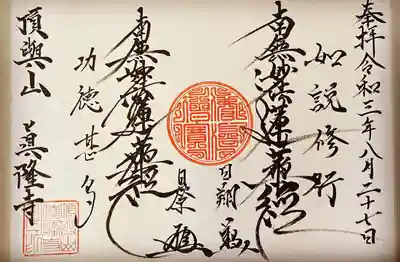 奉拝 令和三年八月二十七日
如説修行
南無妙法蓮華経
日翔
南無妙法蓮華経
功徳甚多
頂與山 眞隆寺